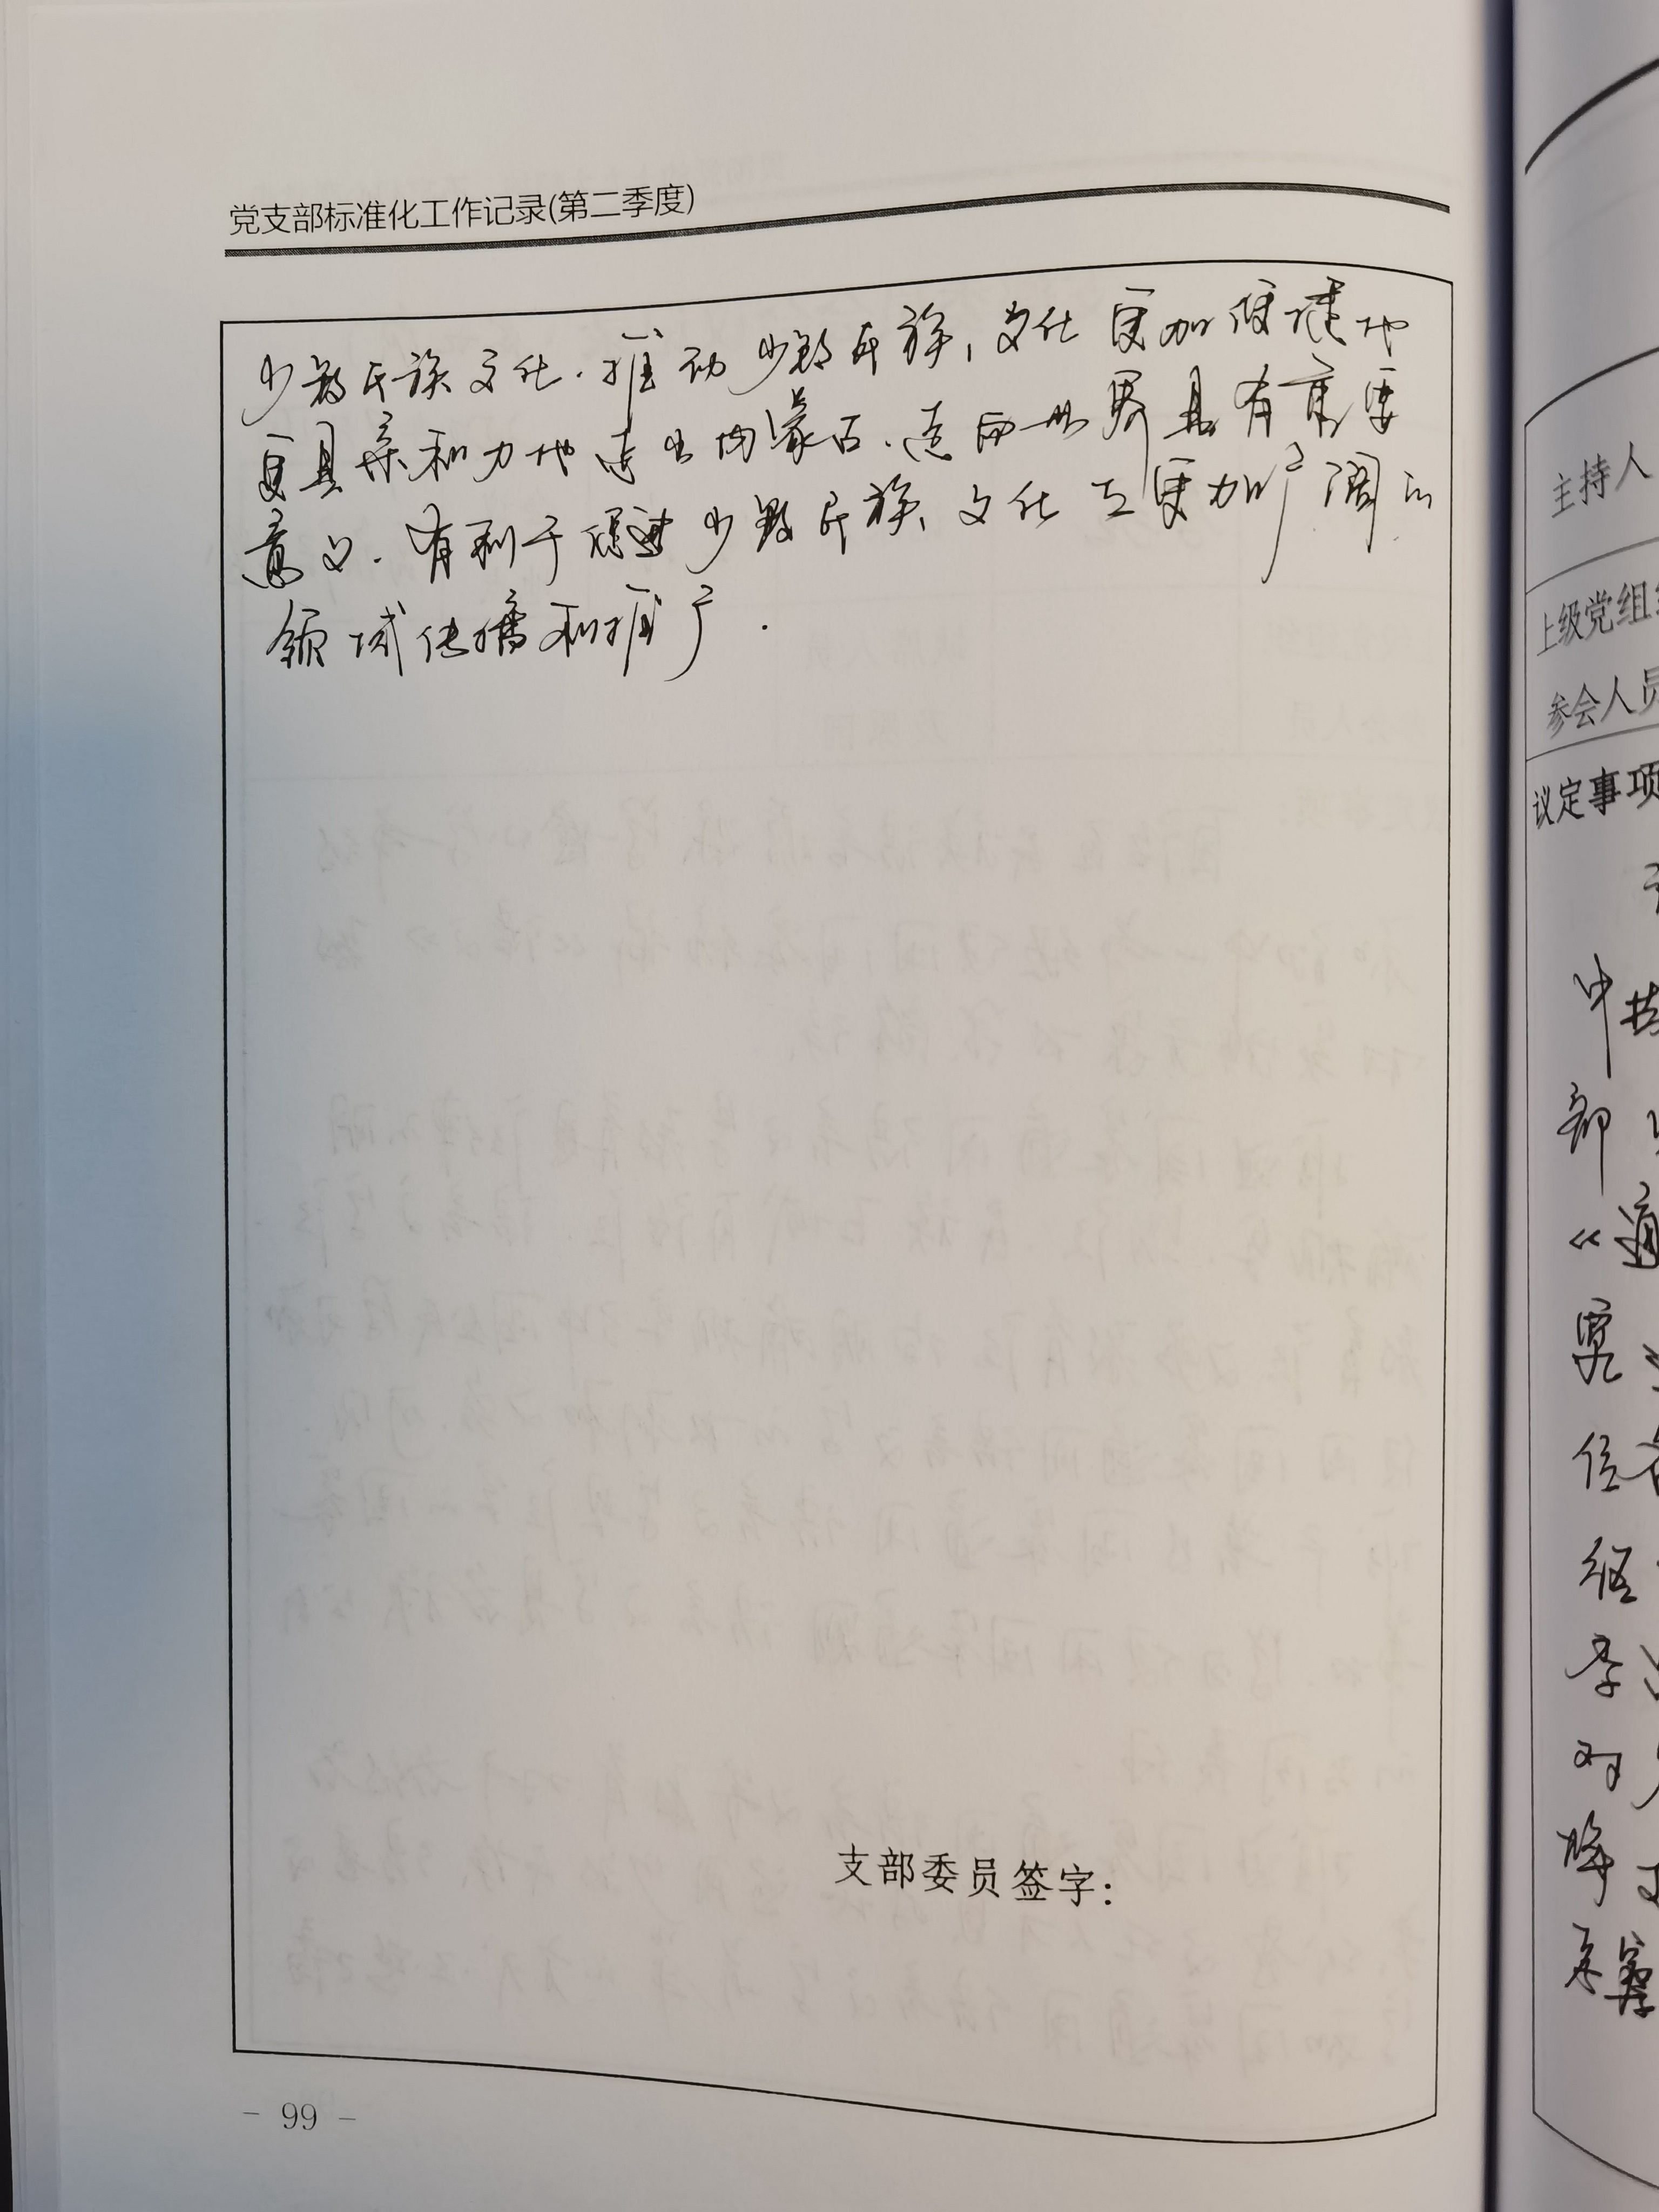 党支部标准化工作记录(第二季度)
少数民族文化.推动少数民族,文化更加便捷地
更具亲和力地走出内蒙古.走向世界具有重要
意义.有利于促进少数民族,文化在更加广阔的
领域传播和推广.
支部委员签字:
- 99 -
主持人
上级党组
参会人员
议定事项
中共
部
《通
要
位
经
李
对